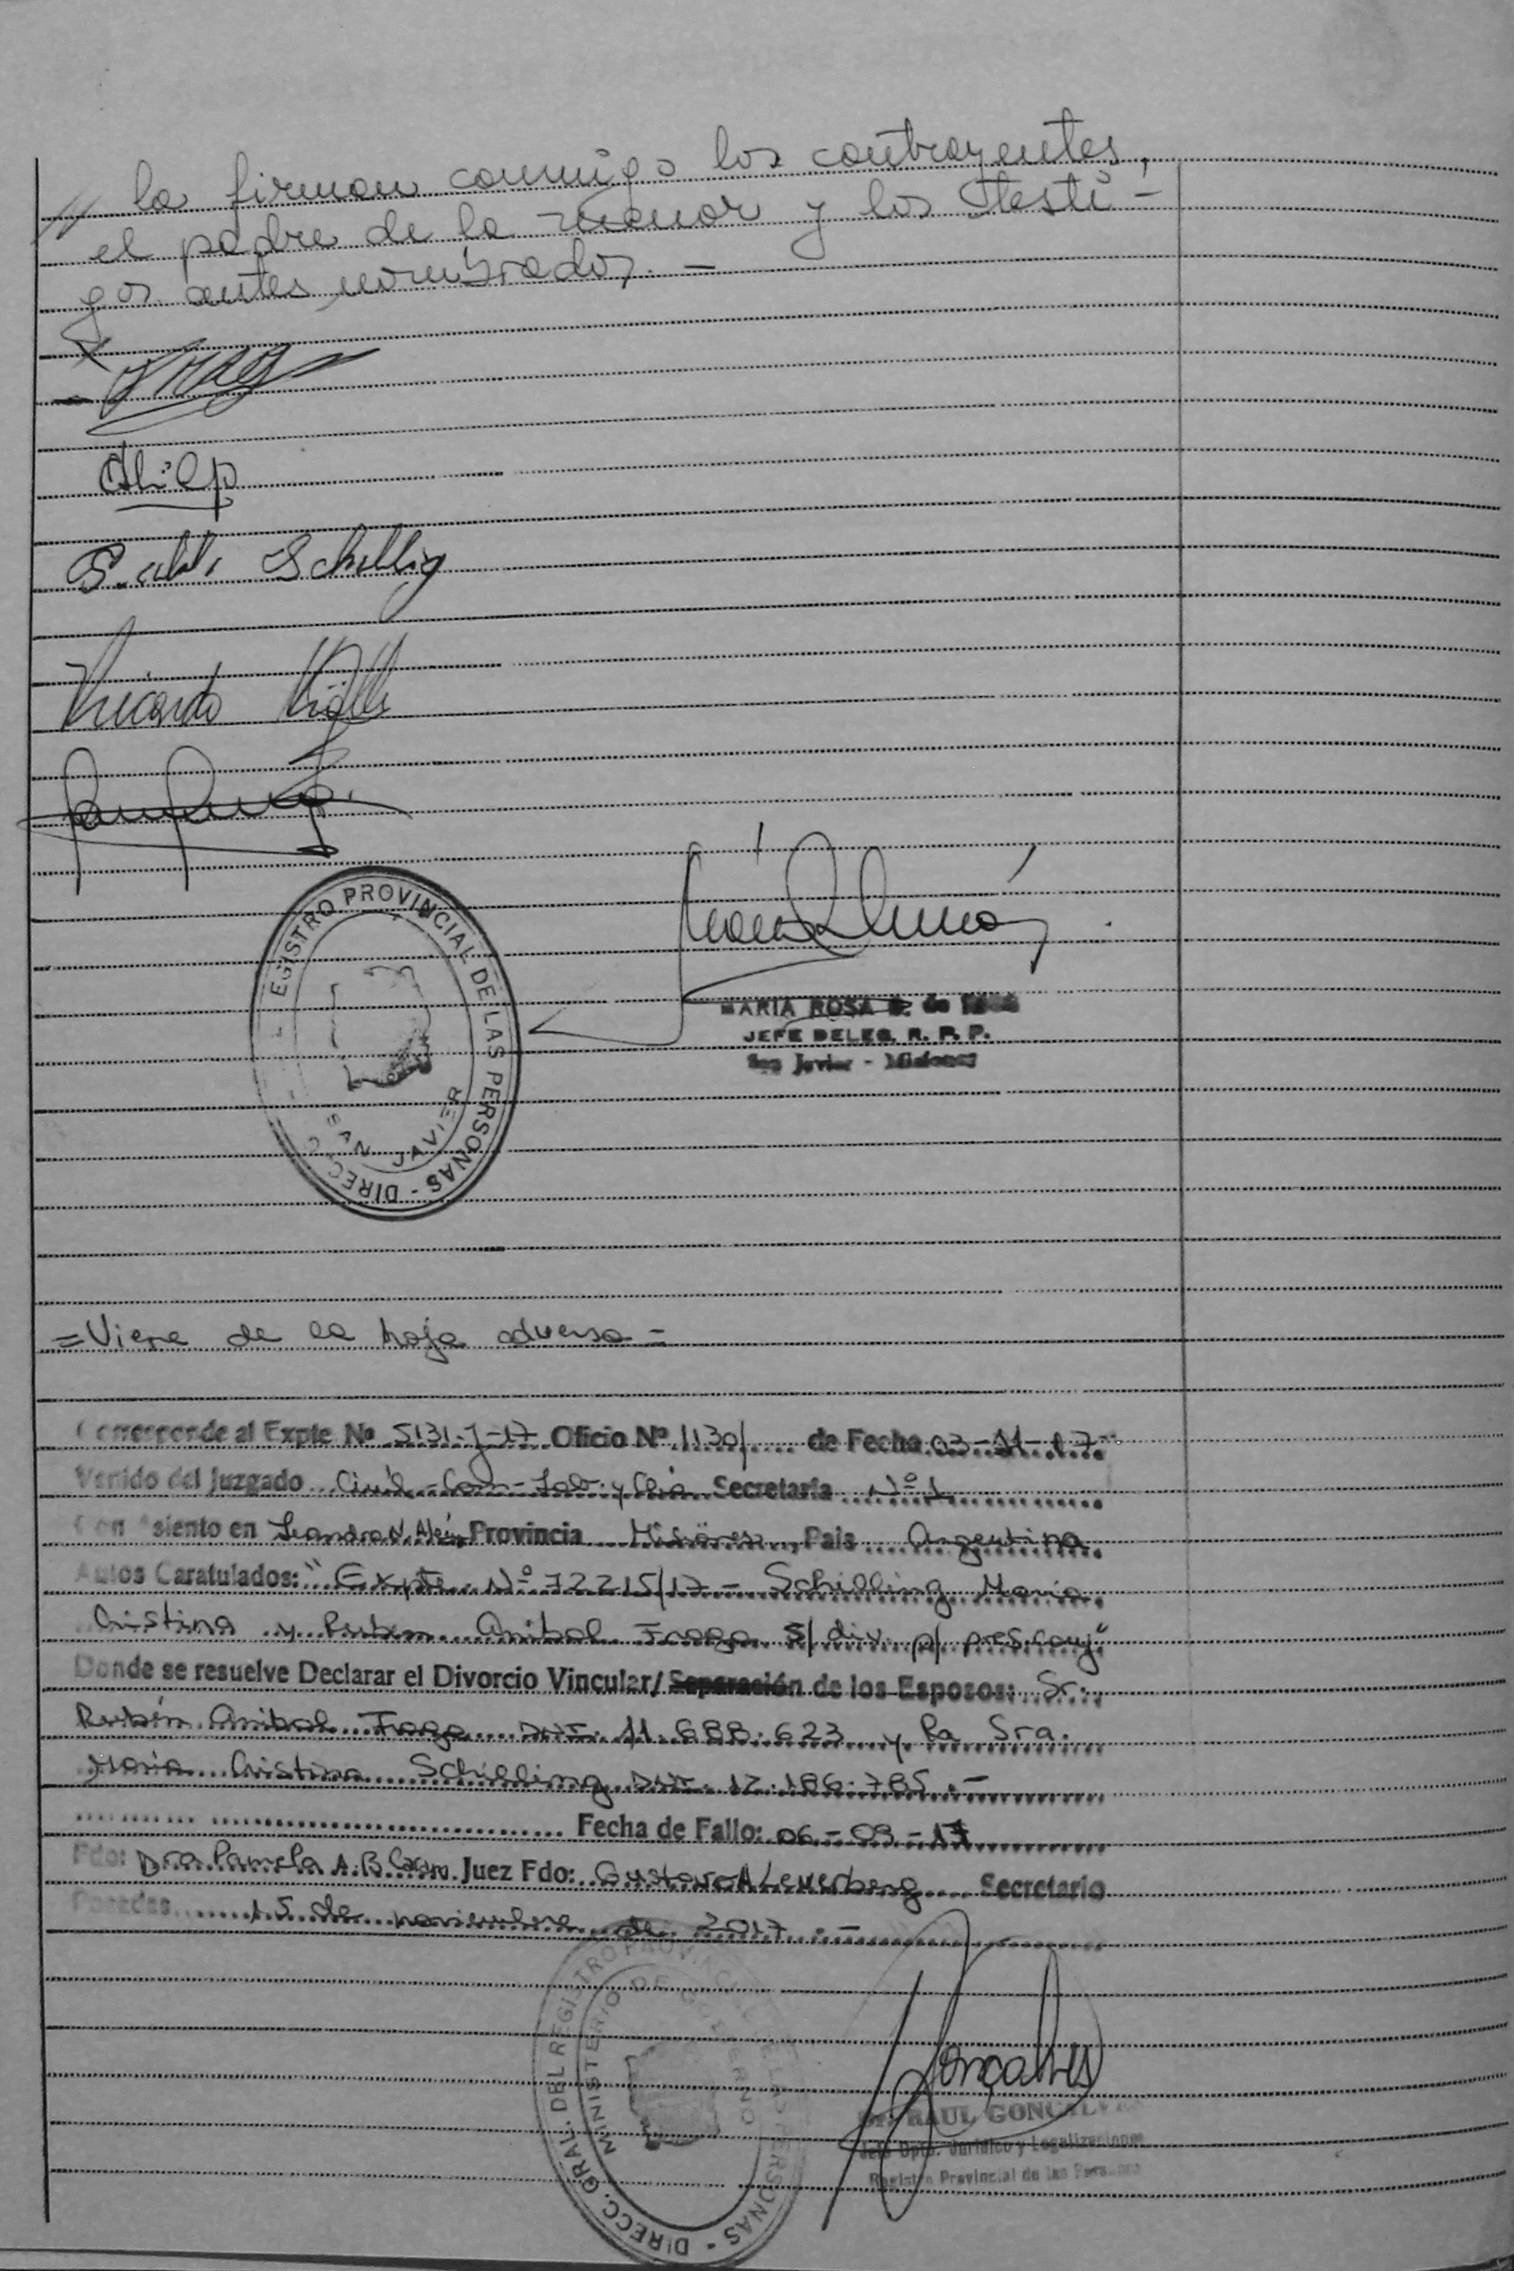 // la firman conmigo los contrayentes,
el padre de la menor y los testi-
gos antes nombrados. -
Schilling
Ricardo
REGISTRO PROVINCIAL DE LAS PERSONAS - DIRECC.
SAN JAVIER
MARIA ROSA de
JEFE DELEG. R. P. P.
San Javier - Misiones
= Viene de la hoja adversa =
Corresponde al Expte Nº 5131-J-17 Oficio Nº 1130/ de Fecha 03-11-17
Venido del Juzgado Civil-Com-Lab. y Flia. Secretaría Nº 1
Con Asiento en Leandro N. Alem Provincia Misiones, Pais Argentina
Autos Caratulados: "Expte Nº 72215/17 - Schilling Maria
Cristina y Ruben Anibal Fraga S/ div. p/ pres. conj"
Donde se resuelve Declarar el Divorcio Vincular/ Separación de los Esposos: Sr.
Rubén Anibal Fraga DNI. 11.688.623 y la Sra.
Maria Cristina Schilling DNI. 12.186.785.-
Fecha de Fallo: 06-09-17
Fdo: Dra Pamela A.B. Juez Fdo: Gustavo A Secretario
Posadas 15 de noviembre de 2017.-
DIRECC. GRAL. DEL REGISTRO PROVINCIAL DE LAS PERSONAS -
MINISTERIO DE GOBIERNO
Gonçalves
Dr. RAUL GONÇALVES
Jefe Dpto. Jurídico y Legalizaciones
Registro Provincial de las Personas